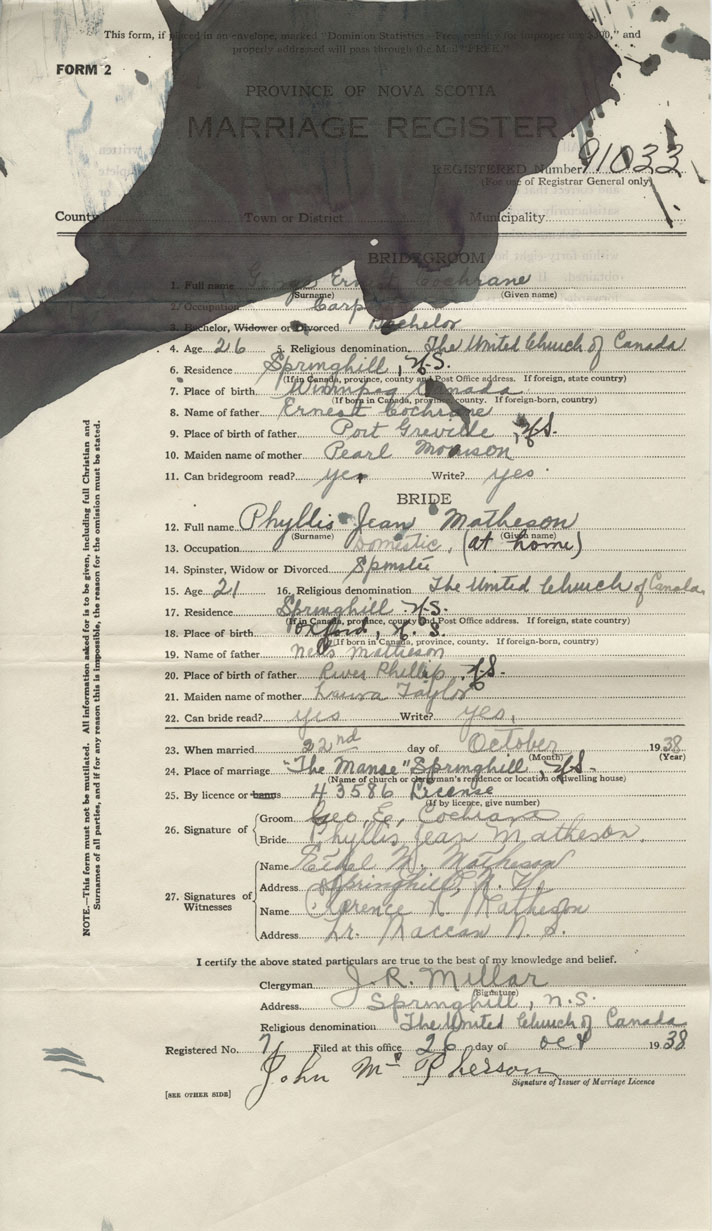 This form, if placed in an envelope, marked "Dominion Statistics—Free, penalty for improper use $300," and
properly addressed will pass through the Mail "FREE."
FORM 2
PROVINCE OF NOVA SCOTIA
MARRIAGE REGISTER
REGISTERED Number 91033
(For use of Registrar General only)
County Town or District Municipality
BRIDEGROOM
1. Full name George Ernest Cochrane
(Surname) (Given name)
2. Occupation Carp
3. Bachelor, Widower or Divorced Bachelor
4. Age 26 5. Religious denomination The United Church of Canada
6. Residence Springhill, N.S.
(If in Canada, province, county and Post Office address. If foreign, state country)
7. Place of birth Winnipeg Canada
(If born in Canada, province, county. If foreign-born, country)
8. Name of father Ernest Cochrane
9. Place of birth of father Port Greville, N.S.
10. Maiden name of mother Pearl Morrison
11. Can bridegroom read? yes Write? yes
BRIDE
12. Full name Phyllis Jean Matheson
(Surname) (Given name)
13. Occupation Domestic, (at home)
14. Spinster, Widow or Divorced Spinster
15. Age 21 16. Religious denomination The United Church of Canada
17. Residence Springhill N.S.
(If in Canada, province, county and Post Office address. If foreign, state country)
18. Place of birth Oxford, N.S.
(If born in Canada, province, county. If foreign-born, country)
19. Name of father Matheson
20. Place of birth of father River Phillip, N.S.
21. Maiden name of mother Laura Taylor
22. Can bride read? yes Write? yes,
23. When married 22nd day of October 1938
(Month) (Year)
24. Place of marriage "The Manse" Springhill, N.S.
(Name of church or clergyman's residence or location of dwelling house)
25. By licence or banns 43586 License
(If by licence, give number)
26. Signature of Groom Geo. E. Cochrane
Bride Phyllis Jean Matheson.
27. Signatures of Witnesses Name Ethel M. Matheson
Address Springhill, N.S.
Name Clarence N. Matheson
Address Lr. Maccan N.S.
I certify the above stated particulars are true to the best of my knowledge and belief.
Clergyman J.R. Millar
(Signature)
Address Springhill, N.S.
Religious denomination The United Church of Canada
Registered No. 71 Filed at this office 26 day of Oct 1938
John McPherson
Signature of Issuer of Marriage Licence
[SEE OTHER SIDE]
NOTE.—This form must not be mutilated. All information asked for is to be given, including full Christian and
Surnames of all parties, and if for any reason this is impossible, the reason for the omission must be stated.